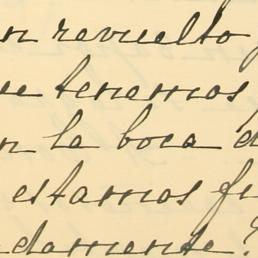 n revuelto
ue tenemos
n la boca d
estamos fu
damente?